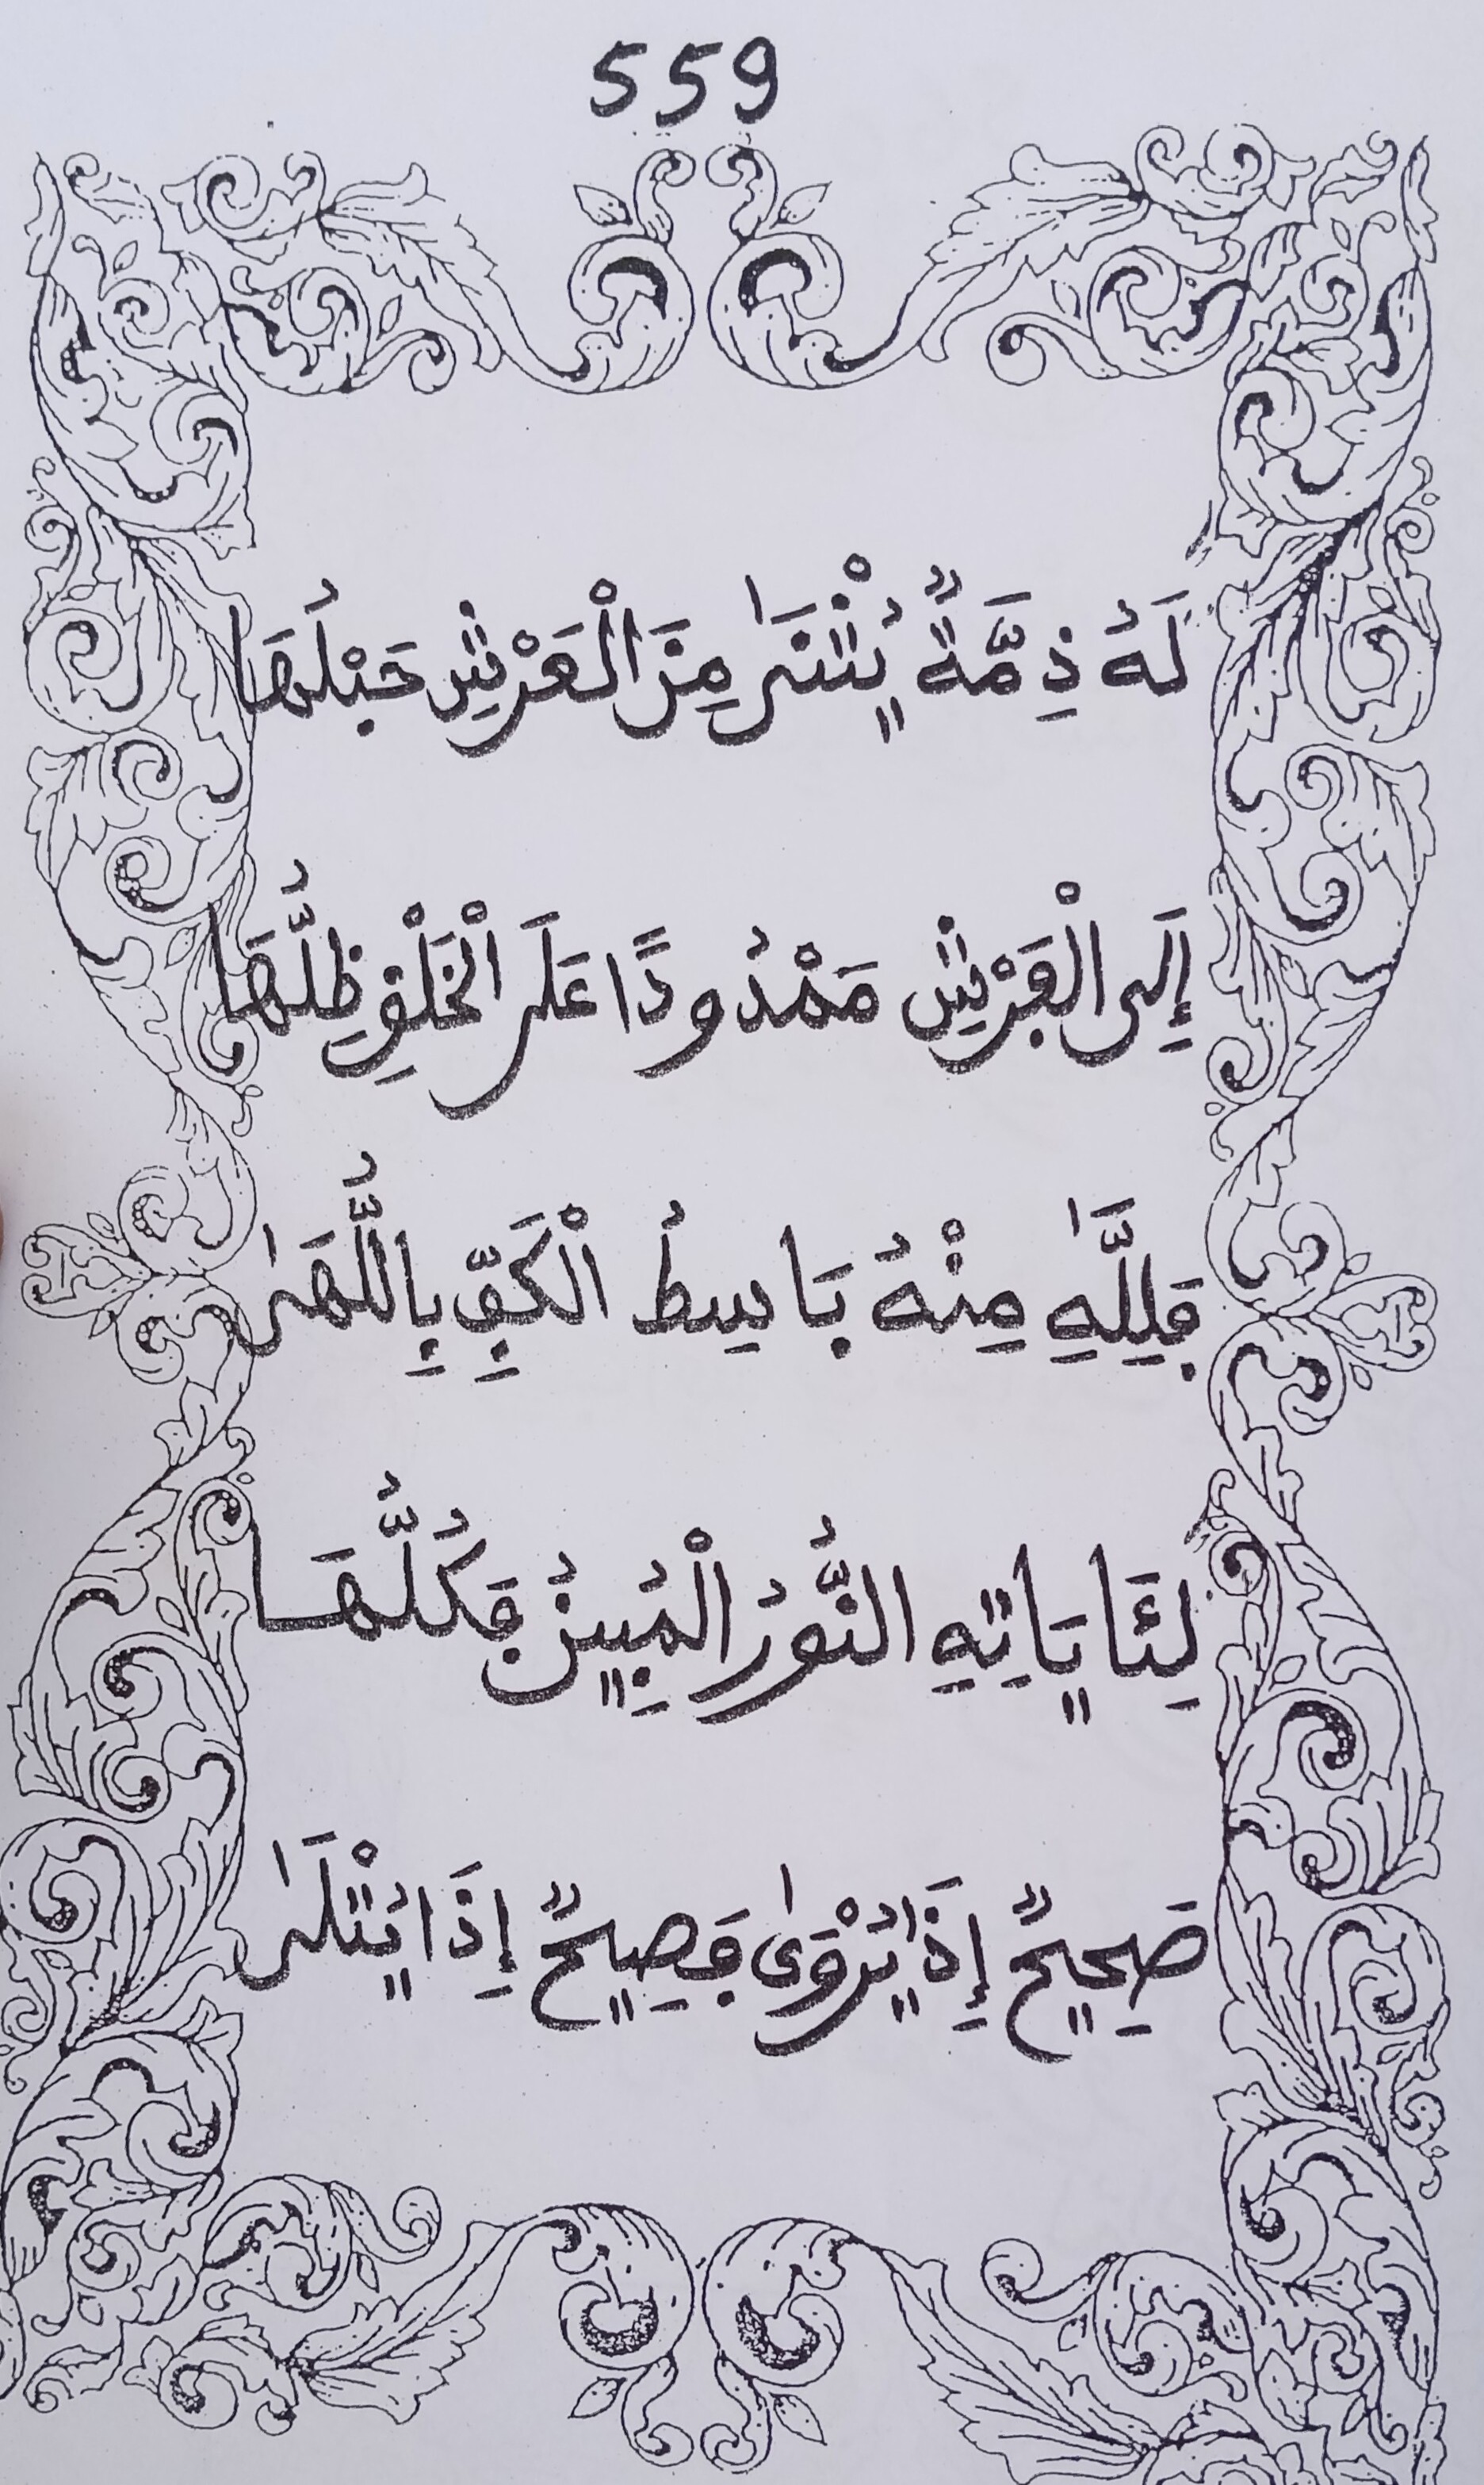 559
لَهُ ذِمَّةٌ يُثْنَىٰ مِنَ الْعَرْشِ حَبْلُهَا
إِلَى الْفَرْشِ مَمْدُودًا عَلَى الْخَلْقِ ظِلُّهَا
فَلِلَّهِ مِنْهُ بَاسِطُ الْكَفِّ بِاللُّهَىٰ
لِئَايَاتِهِ النُّورُ الْمُبِينُ فَكُلُّهَا
صَحِيحٌ إِذَا يُرْوَىٰ فَصِيحٌ إِذَا يُتْلَىٰ